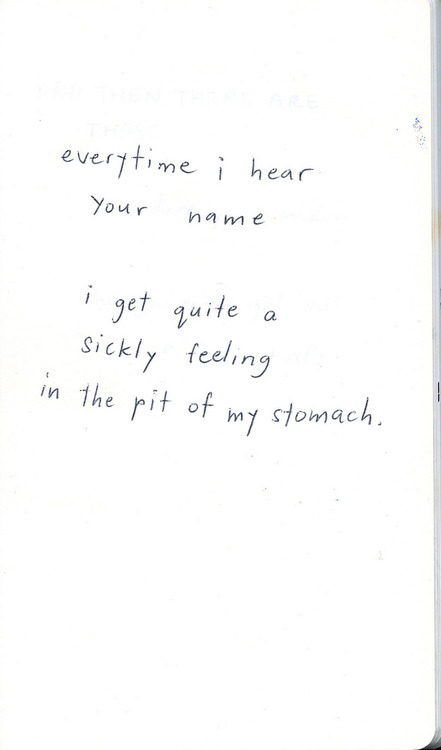 everytime i hear
your name
i get quite a
sickly feeling
in the pit of my stomach.